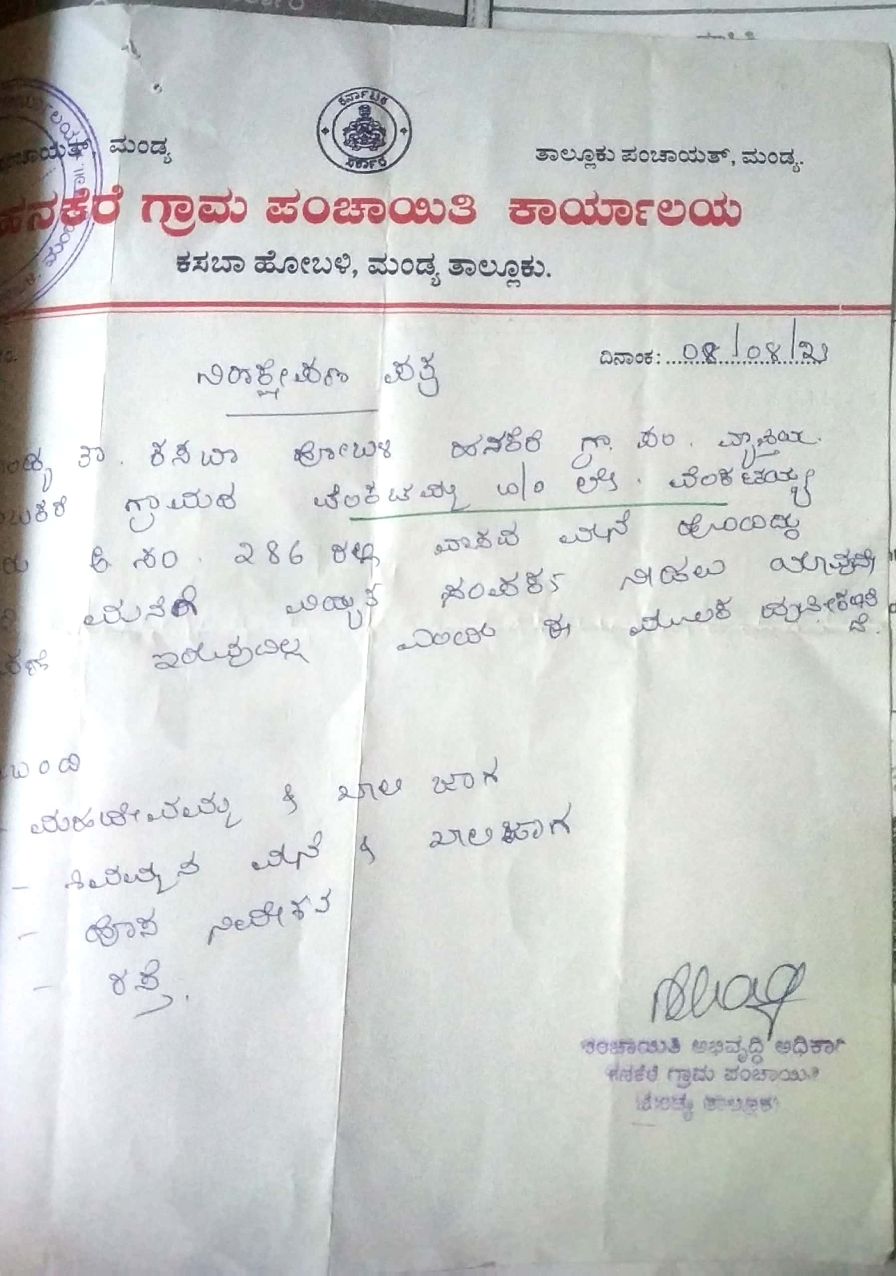 ಪಂಚಾಯತ್, ಮಂಡ್ಯ
ಕರ್ನಾಟಕ
ಸರ್ಕಾರ
ತಾಲ್ಲೂಕು ಪಂಚಾಯತ್, ಮಂಡ್ಯ.
ಹನಕೆರೆ ಗ್ರಾಮ ಪಂಚಾಯಿತಿ ಕಾರ್ಯಾಲಯ
ಕಸಬಾ ಹೋಬಳಿ, ಮಂಡ್ಯ ತಾಲ್ಲೂಕು.
ದಿನಾಂಕ: 08/04/21
ನಿರಾಕ್ಷೇಪಣಾ ಪತ್ರ
ತಾ. ಕಸಬಾ ಹೋಬಳಿ ಹನಕೆರೆ ಗ್ರಾ. ಪಂ. ವ್ಯಾಪ್ತಿಯ.
ಗ್ರಾಮದ ವೆಂಕಟಮ್ಮ w/o ಲೇ. ವೆಂಕಟಯ್ಯ
ಆ ನಂ. 286 ರಲ್ಲಿ ವಾಸದ ಮನೆ ಹೊಂದಿದ್ದು
ಮನೆಗೆ ವಿದ್ಯುತ್ ಸಂಪರ್ಕ ನೀಡಲು ಯಾವುದೇ
ಇರುವುದಿಲ್ಲ ಎಂದು ಈ ಮೂಲಕ ದೃಢೀಕರಿಸಿದೆ.
- ಮಹದೇವಮ್ಮ & ಖಾಲಿ ಜಾಗ
- ಶಿವಮ್ಮನ ಮನೆ & ಖಾಲಿಜಾಗ
- ಹೊಸ ನಿವೇಶನ
- ರಸ್ತೆ.
ಪಂಚಾಯಿತಿ ಅಭಿವೃದ್ಧಿ ಅಧಿಕಾರಿ
ಹನಕೆರೆ ಗ್ರಾಮ ಪಂಚಾಯಿತಿ
ಮಂಡ್ಯ ತಾಲ್ಲೂಕು